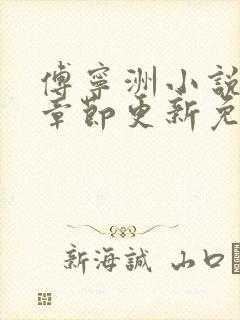 傅寧洲小說
章節更新免
新海誠 山口